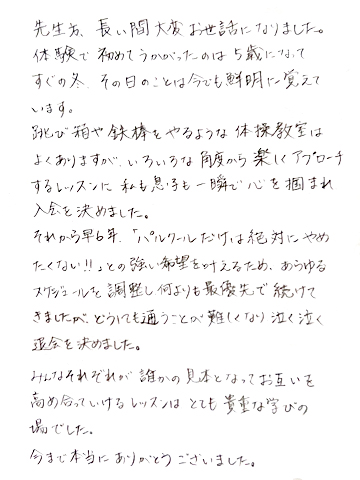 先生方、長い間大変お世話になりました。
体験で初めてうかがったのは5歳になって
すぐの冬、その日のことは今でも鮮明に覚えて
います。
跳び箱や鉄棒をやるような体操教室は
よくありますが、いろいろな角度から楽しくアプローチ
するレッスンに私も息子も一瞬で心を掴まれ
入会を決めました。
それから早6年、「パルクールだけは絶対にやめ
たくない!!」との強い希望を叶えるため、あらゆる
スケジュールを調整し何よりも最優先で続けて
きましたが、どうしても通うことが難しくなり泣く泣く
退会を決めました。
みんなそれぞれが誰かの見本となってお互いを
高め合っていけるレッスンはとても貴重な学びの
場でした。
今まで本当にありがとうございました。